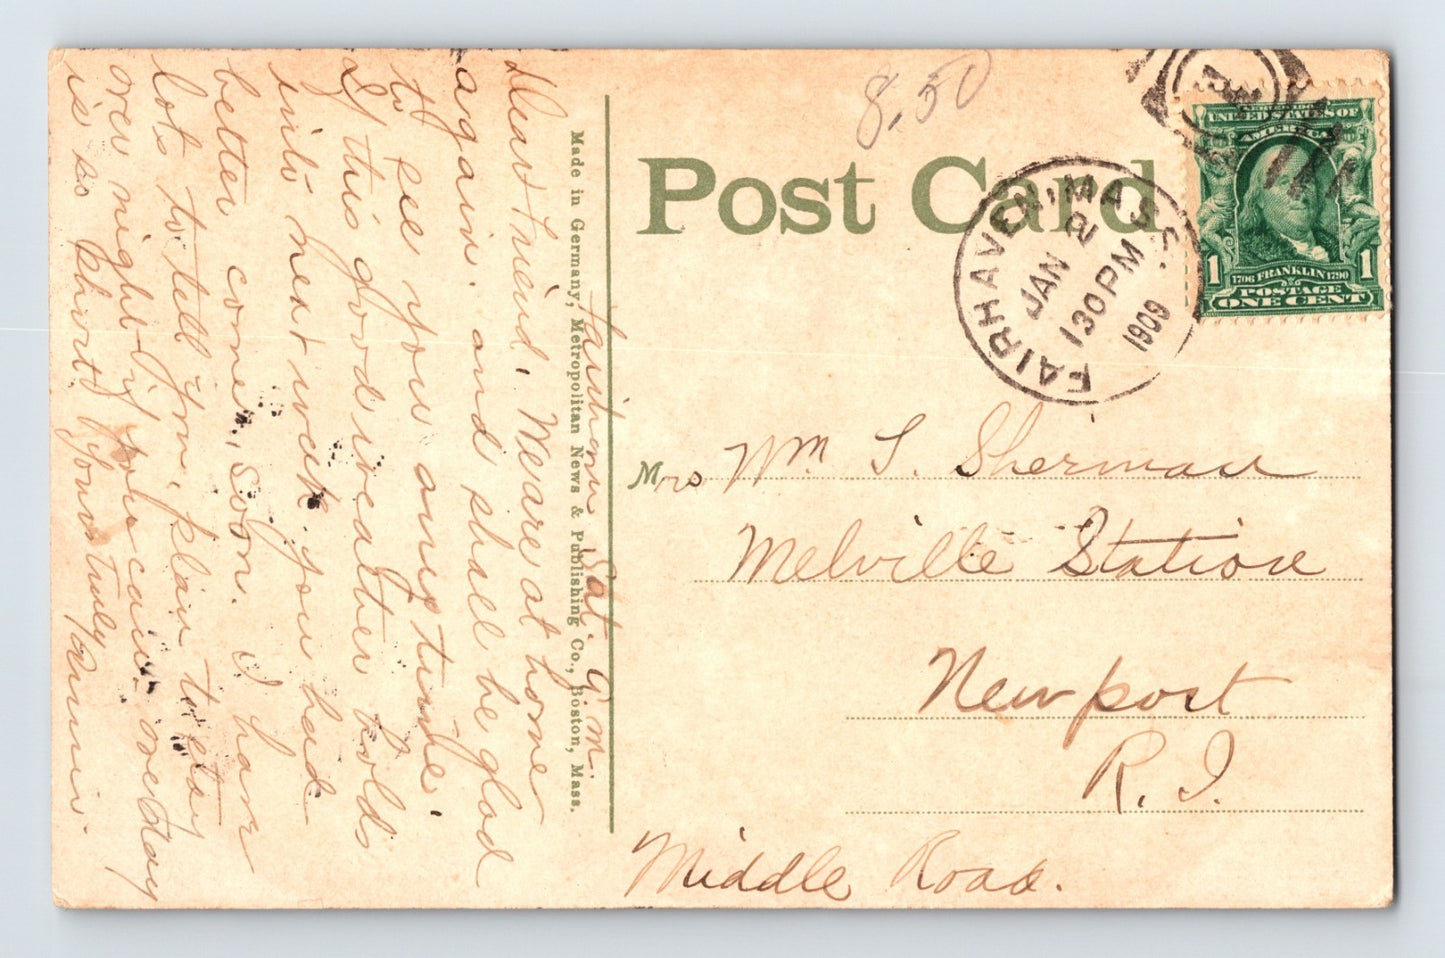 Fairhaven Sat. a.m.
Dear Friend, We are at home
again. and shall be glad
to see you any time.
If this good weather holds
into next week you had
better come, soon. I have
lots to tell you. plan to stay
over night if you can. one day
is so short. Yours truly
Made in Germany, Metropolitan News & Publishing Co., Boston, Mass.
8.50
Post Card
FAIRHAVEN, MASS.
JAN 2
1 30 PM
1909
UNITED STATES OF
AMERICA
1 1706 FRANKLIN 1790 1
POSTAGE
ONE CENT
Mrs Wm T. Sherman
Melville Station
Newport
R. I.
Middle Road.